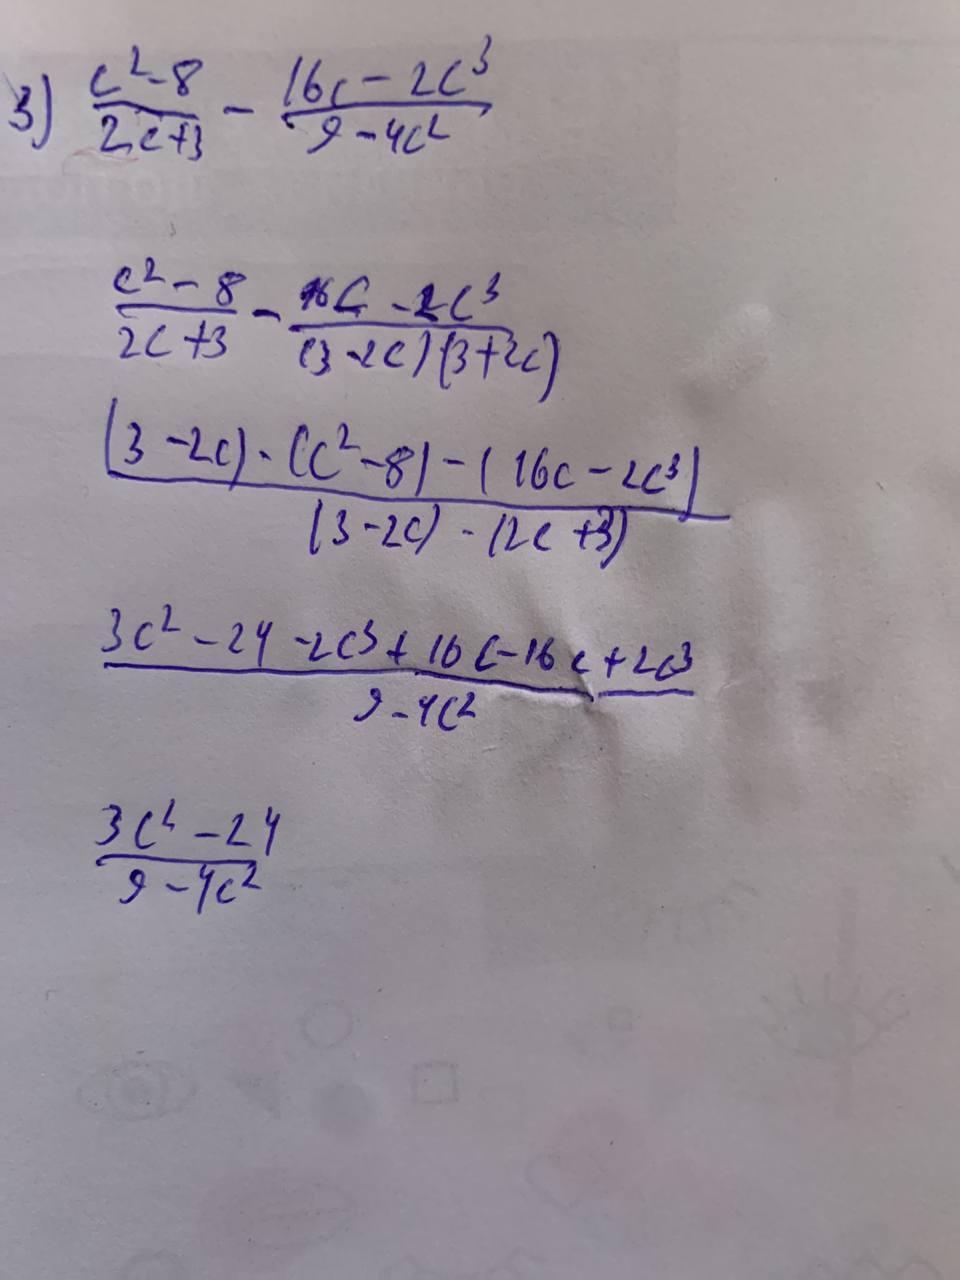 3) (c² - 8)/(2c + 3) - (16c - 2c³)/(9 - 4c²)
(c² - 8)/(2c + 3) - (16c - 2c³)/((3 - 2c)(3 + 2c))
((3 - 2c) · (c² - 8) - (16c - 2c³))/((3 - 2c) · (2c + 3))
(3c² - 24 - 2c³ + 16c - 16c + 2c³)/(9 - 4c²)
(3c² - 24)/(9 - 4c²)